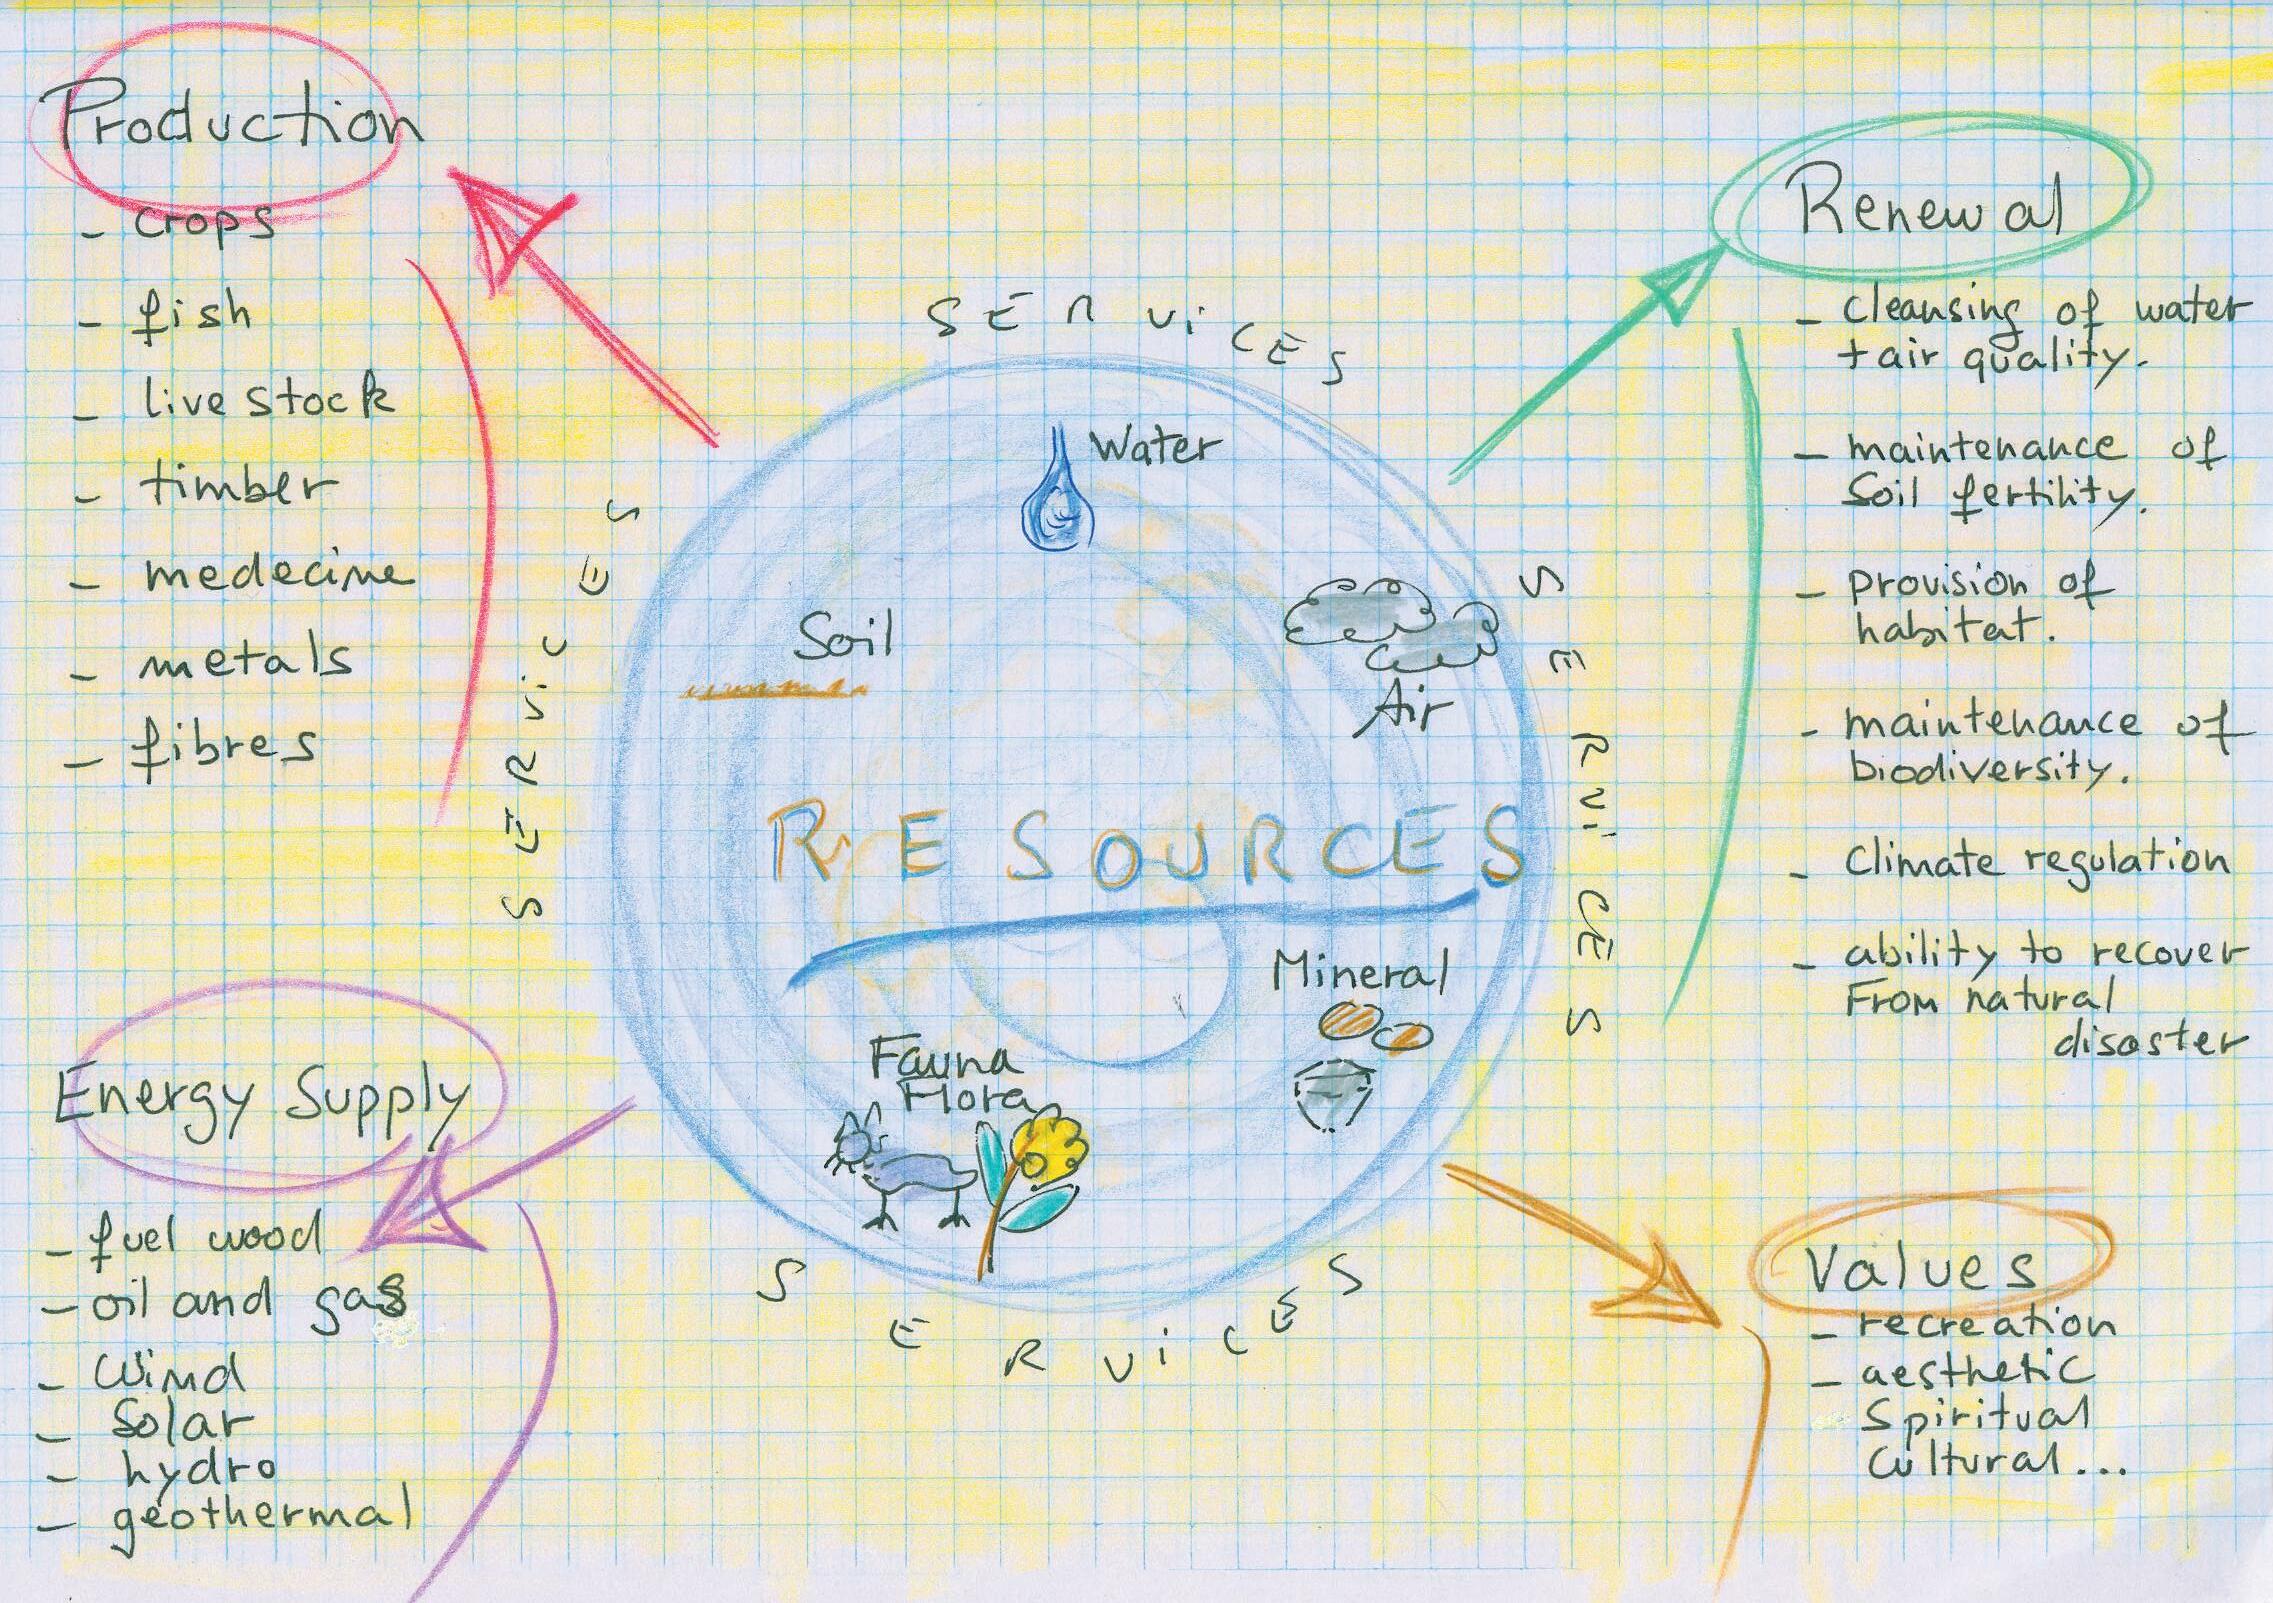 Production
- crops
- fish
- live stock
- timber
- medecine
- metals
- fibres
Energy Supply
- fuel wood
- oil and gas
- Wind
- Solar
- hydro
- geothermal
SERViCES
SERViCES
SERViCES
SERViCES
Water
Soil
Air
RESOURCES
Mineral
Fauna
Flora
Renewal
- cleansing of water
+ air quality.
- maintenance of
Soil fertility.
- provision of
habitat.
- maintenance of
biodiversity.
- Climate regulation
- ability to recover
From natural
disaster
Values
- recreation
- aesthetic
Spiritual
Cultural...